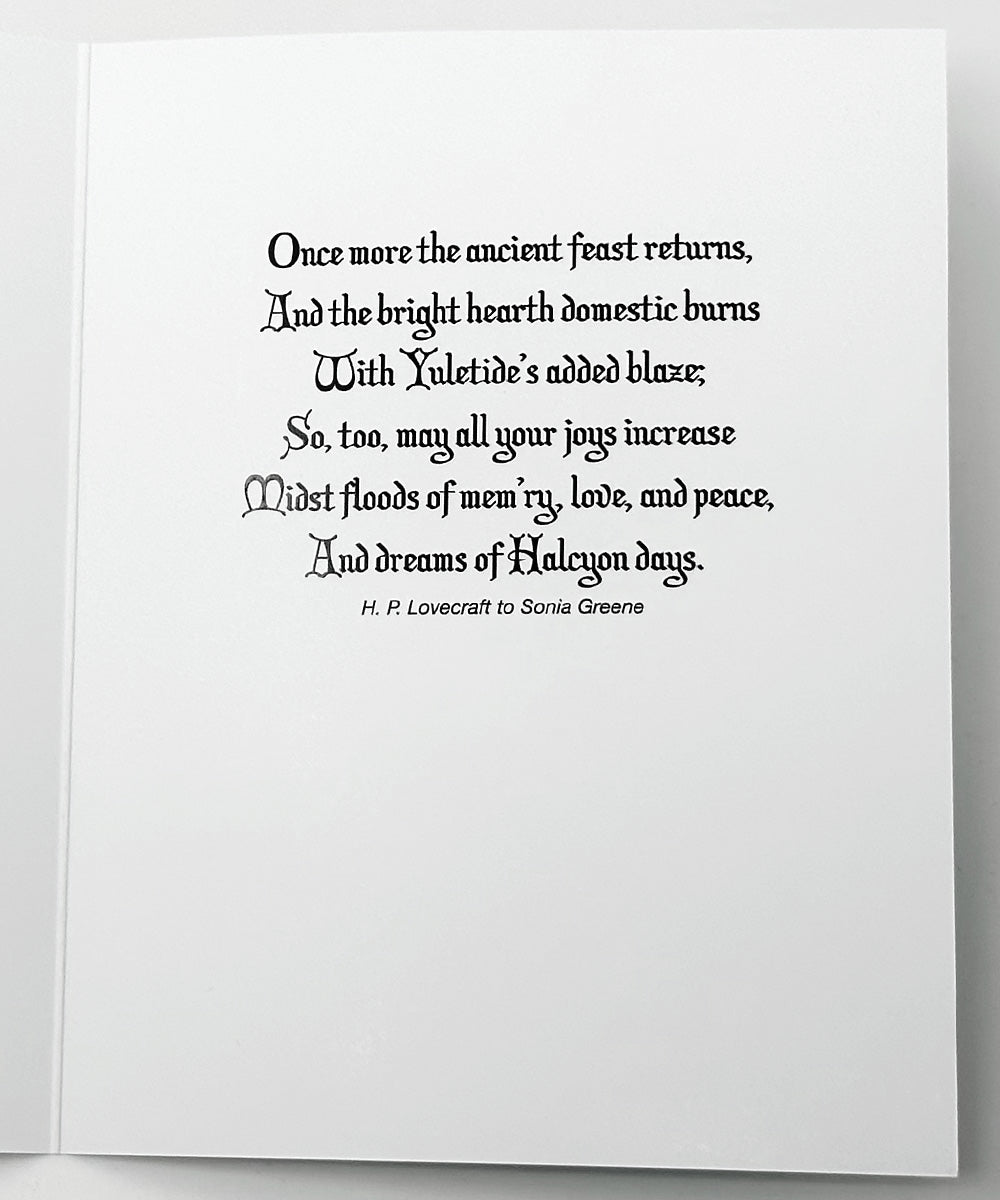 Once more the ancient feast returns,
And the bright hearth domestic burns
With Yuletide's added blaze;
So, too, may all your joys increase
Midst floods of mem'ry, love, and peace,
And dreams of Halcyon days.
H. P. Lovecraft to Sonia Greene